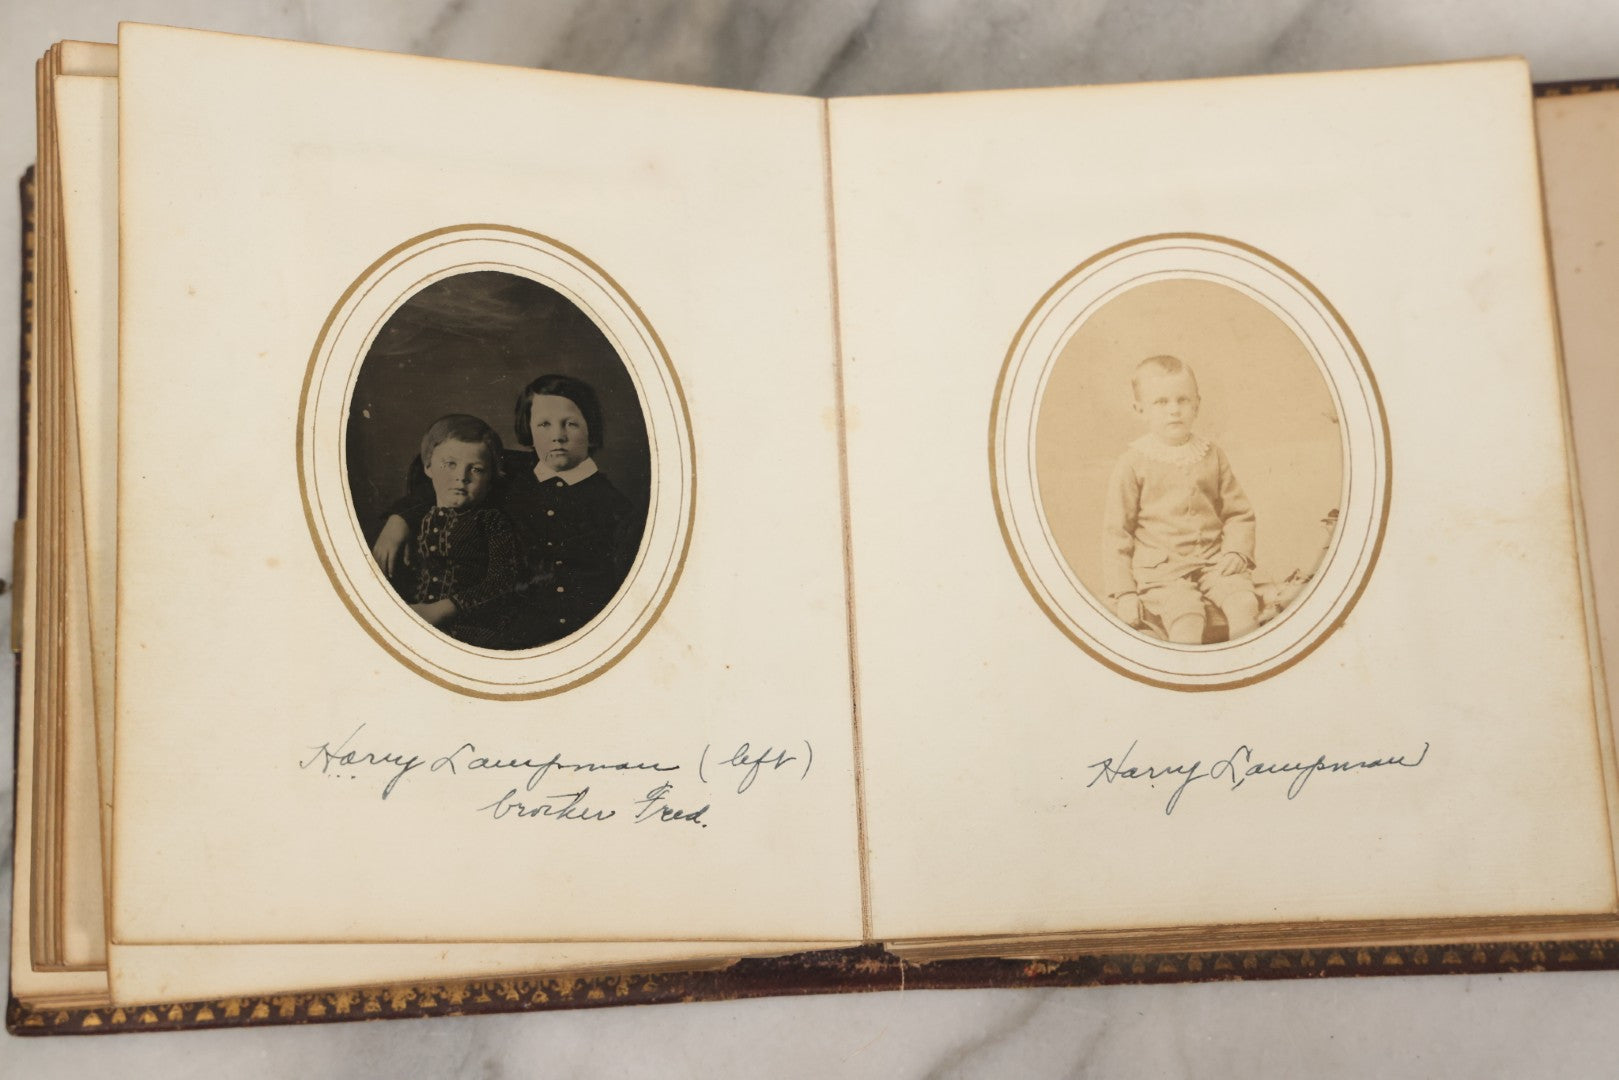 Harry Lampman (left)
brother Fred.
Harry Lampman